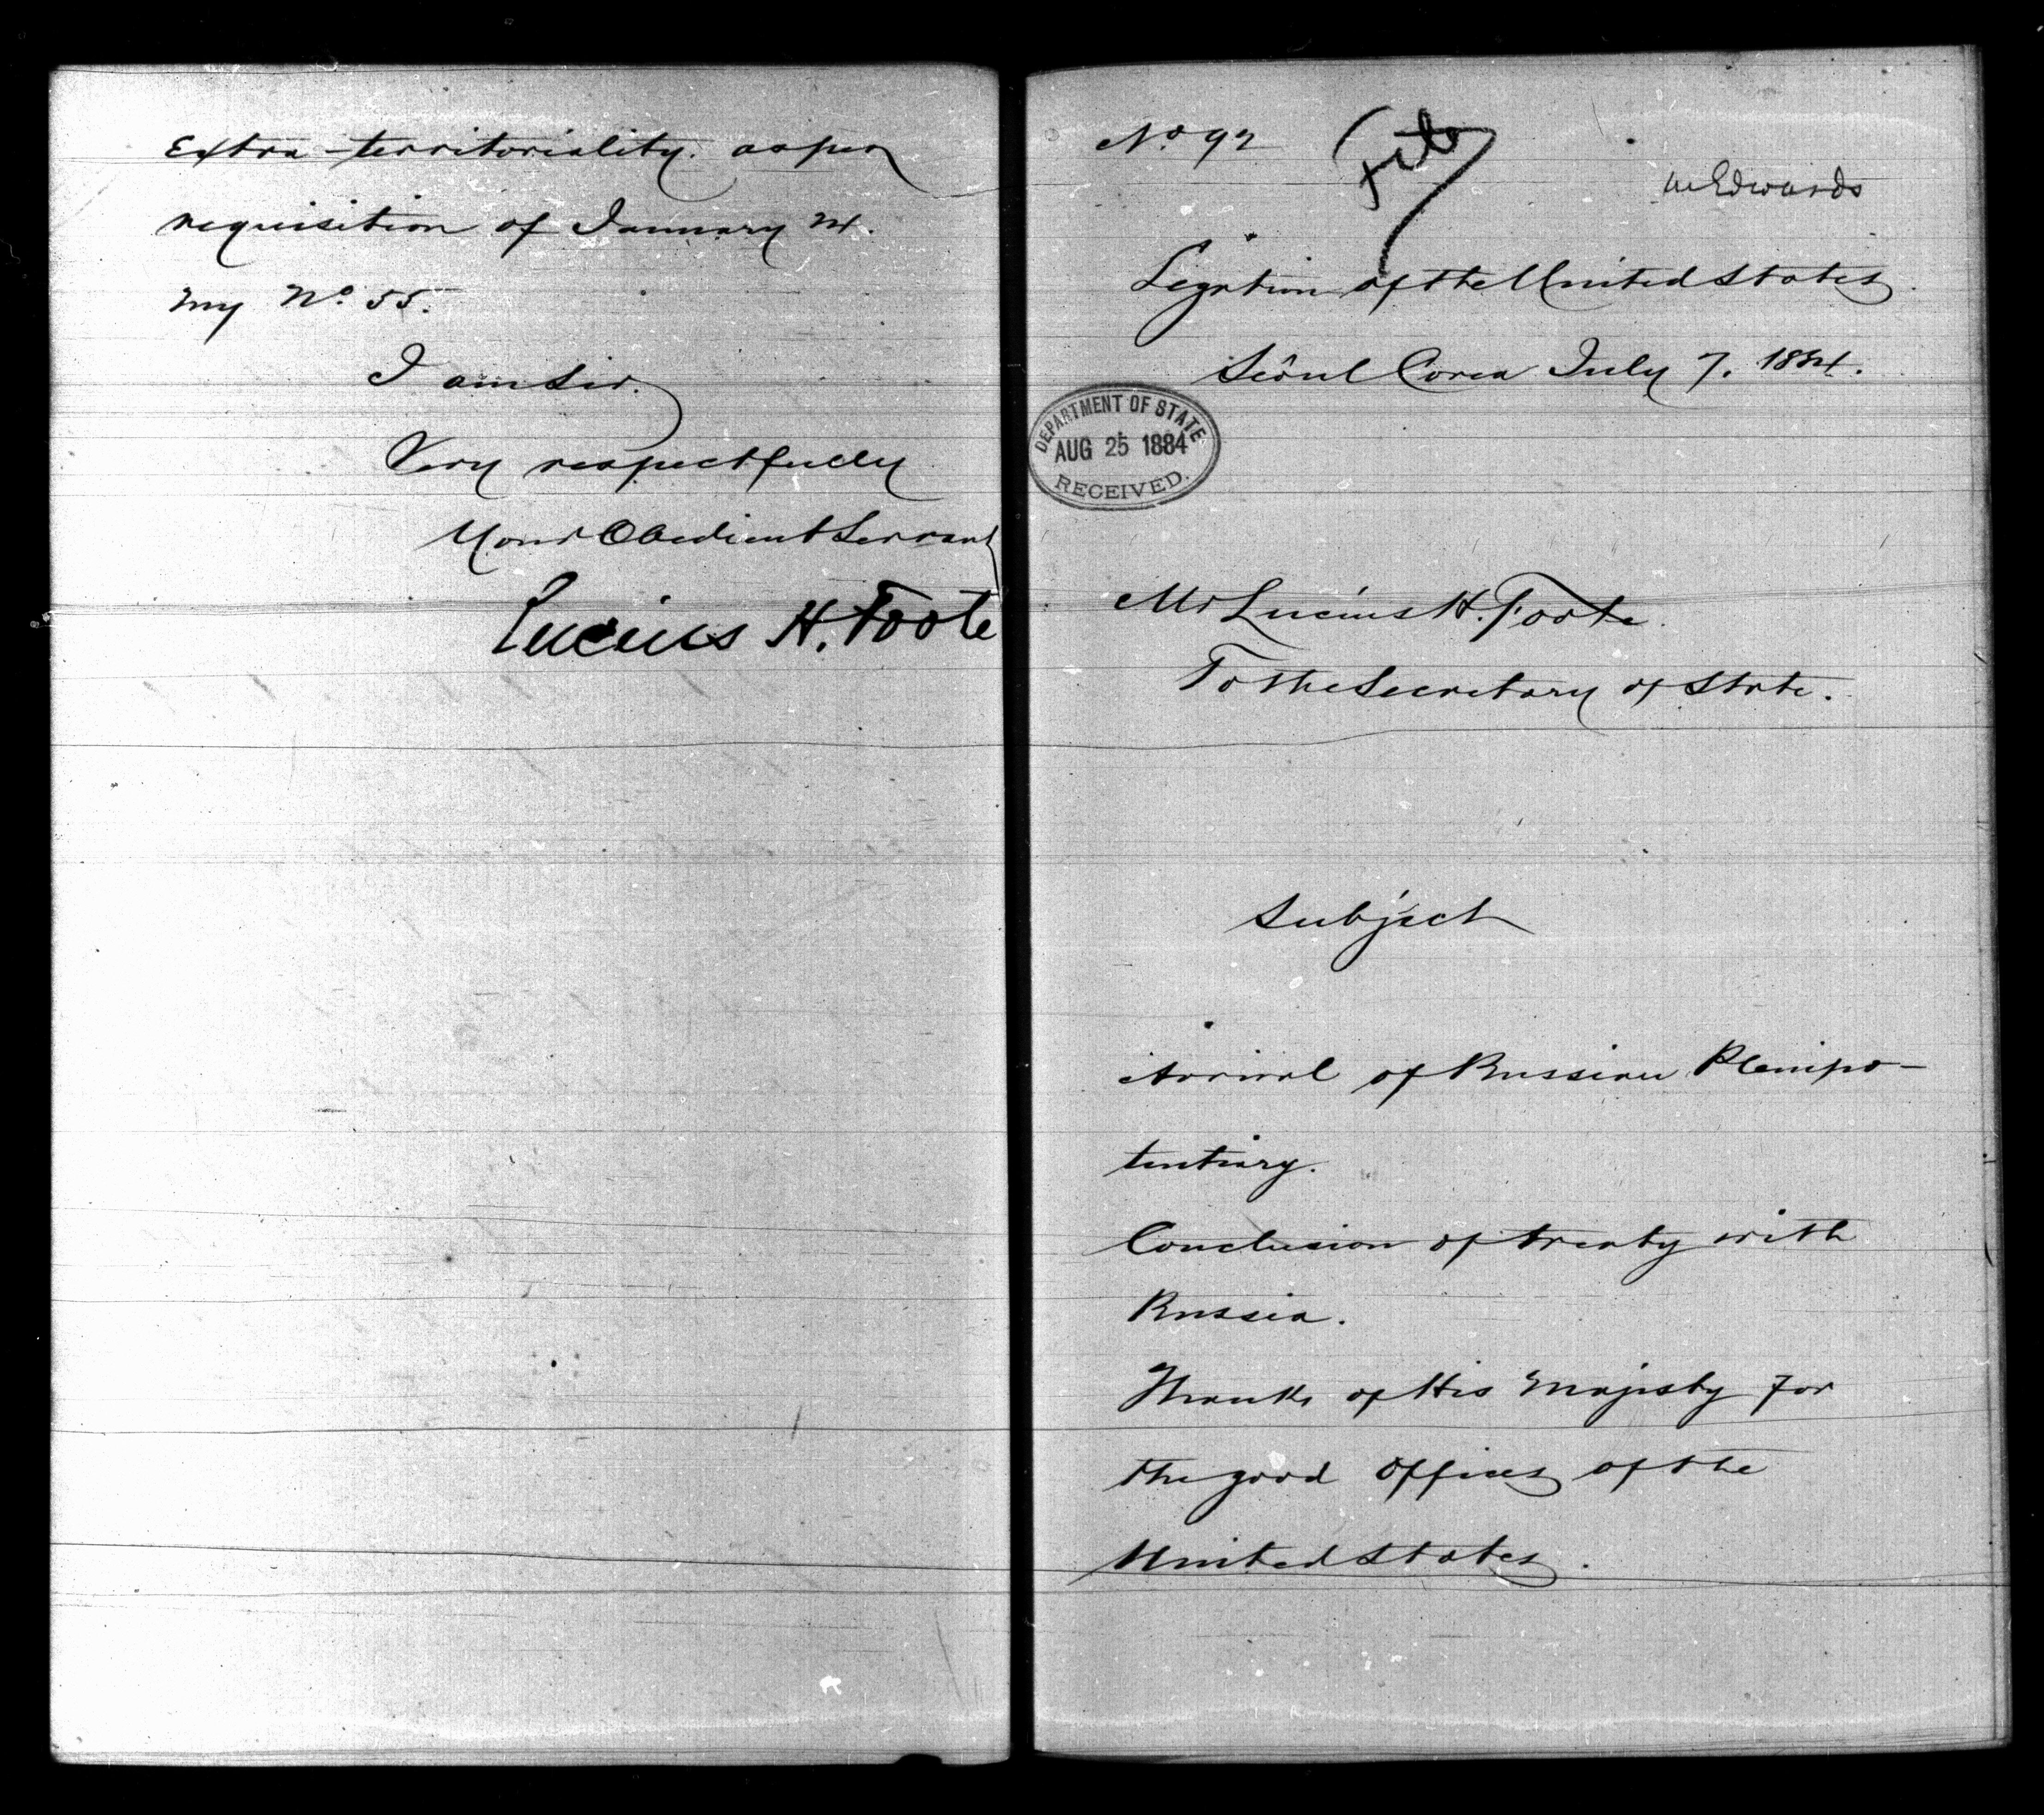 Extra-territoriality. as per
requisition of January 24.
my No. 55.
I am Sir.
Very respectfully
Your Obedient Servant
Lucius H. Foote
No. 92
File
Mr Edwards
Legation of the United States.
Seôul Corea July 7. 1884.
DEPARTMENT OF STATE
AUG 25 1884
RECEIVED.
Mr Lucius H. Foote.
To the Secretary of State.
Subject
Arrival of Russian Plenipo-
tentiary.
Conclusion of treaty with
Russia.
Thanks of His Majesty for
the good offices of the
United States.